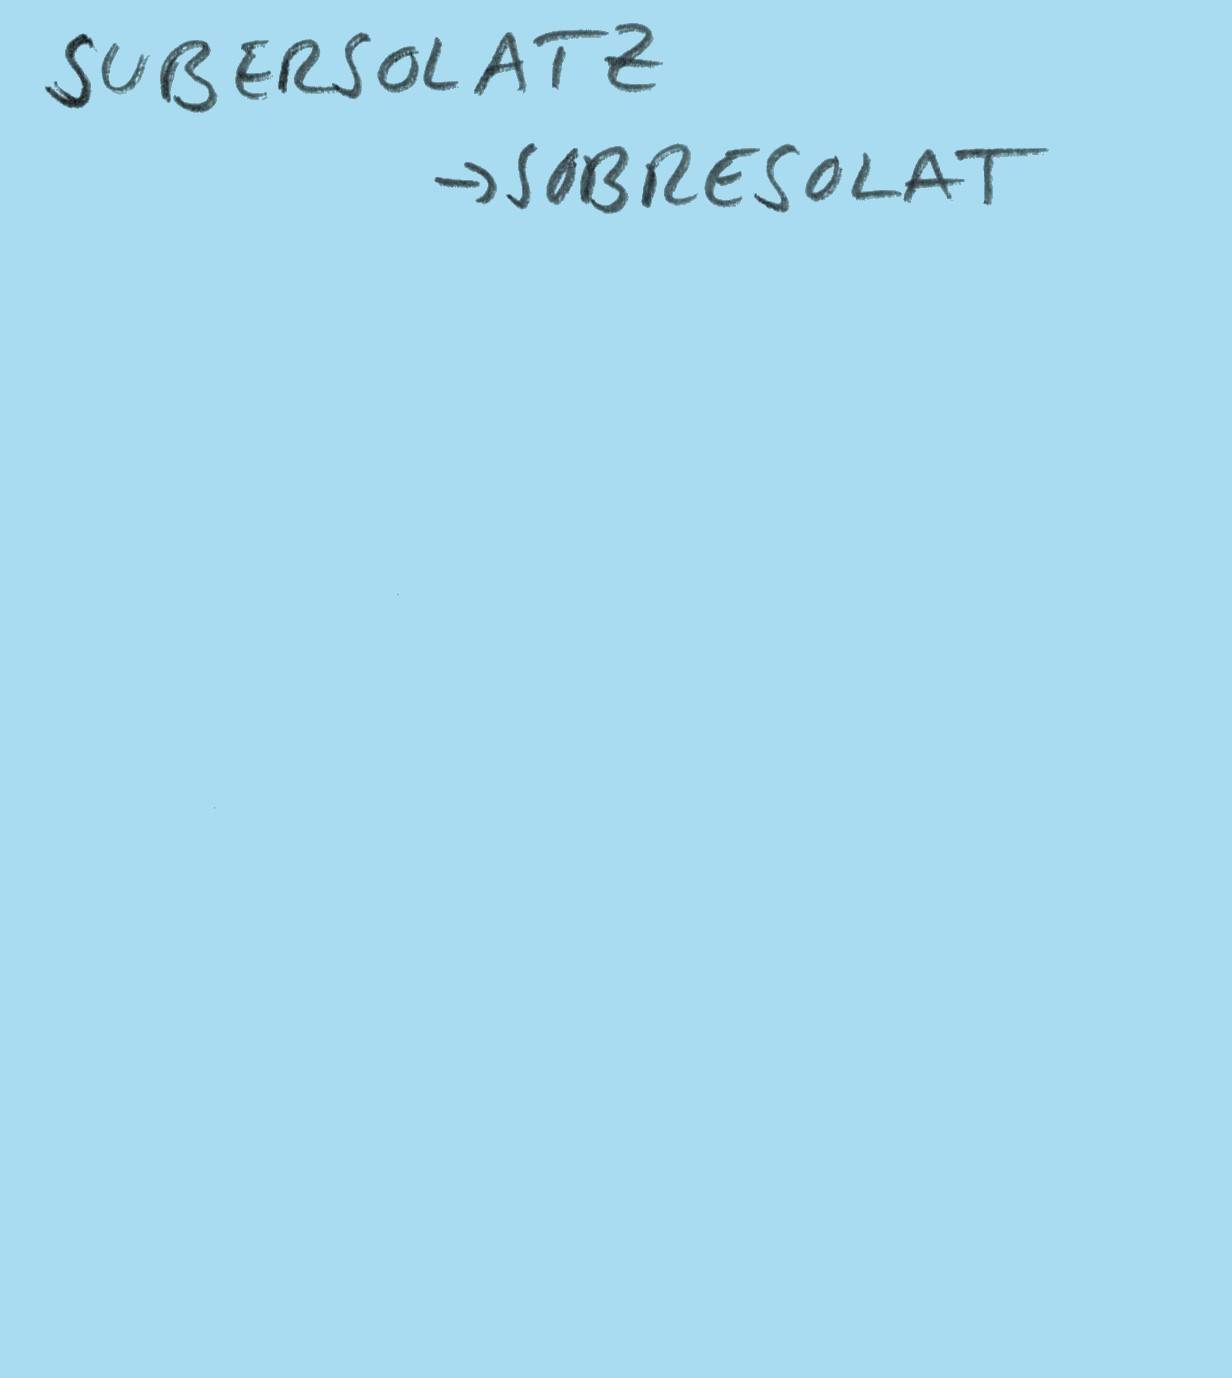 SUBERSOLATZ
→SOBRESOLAT